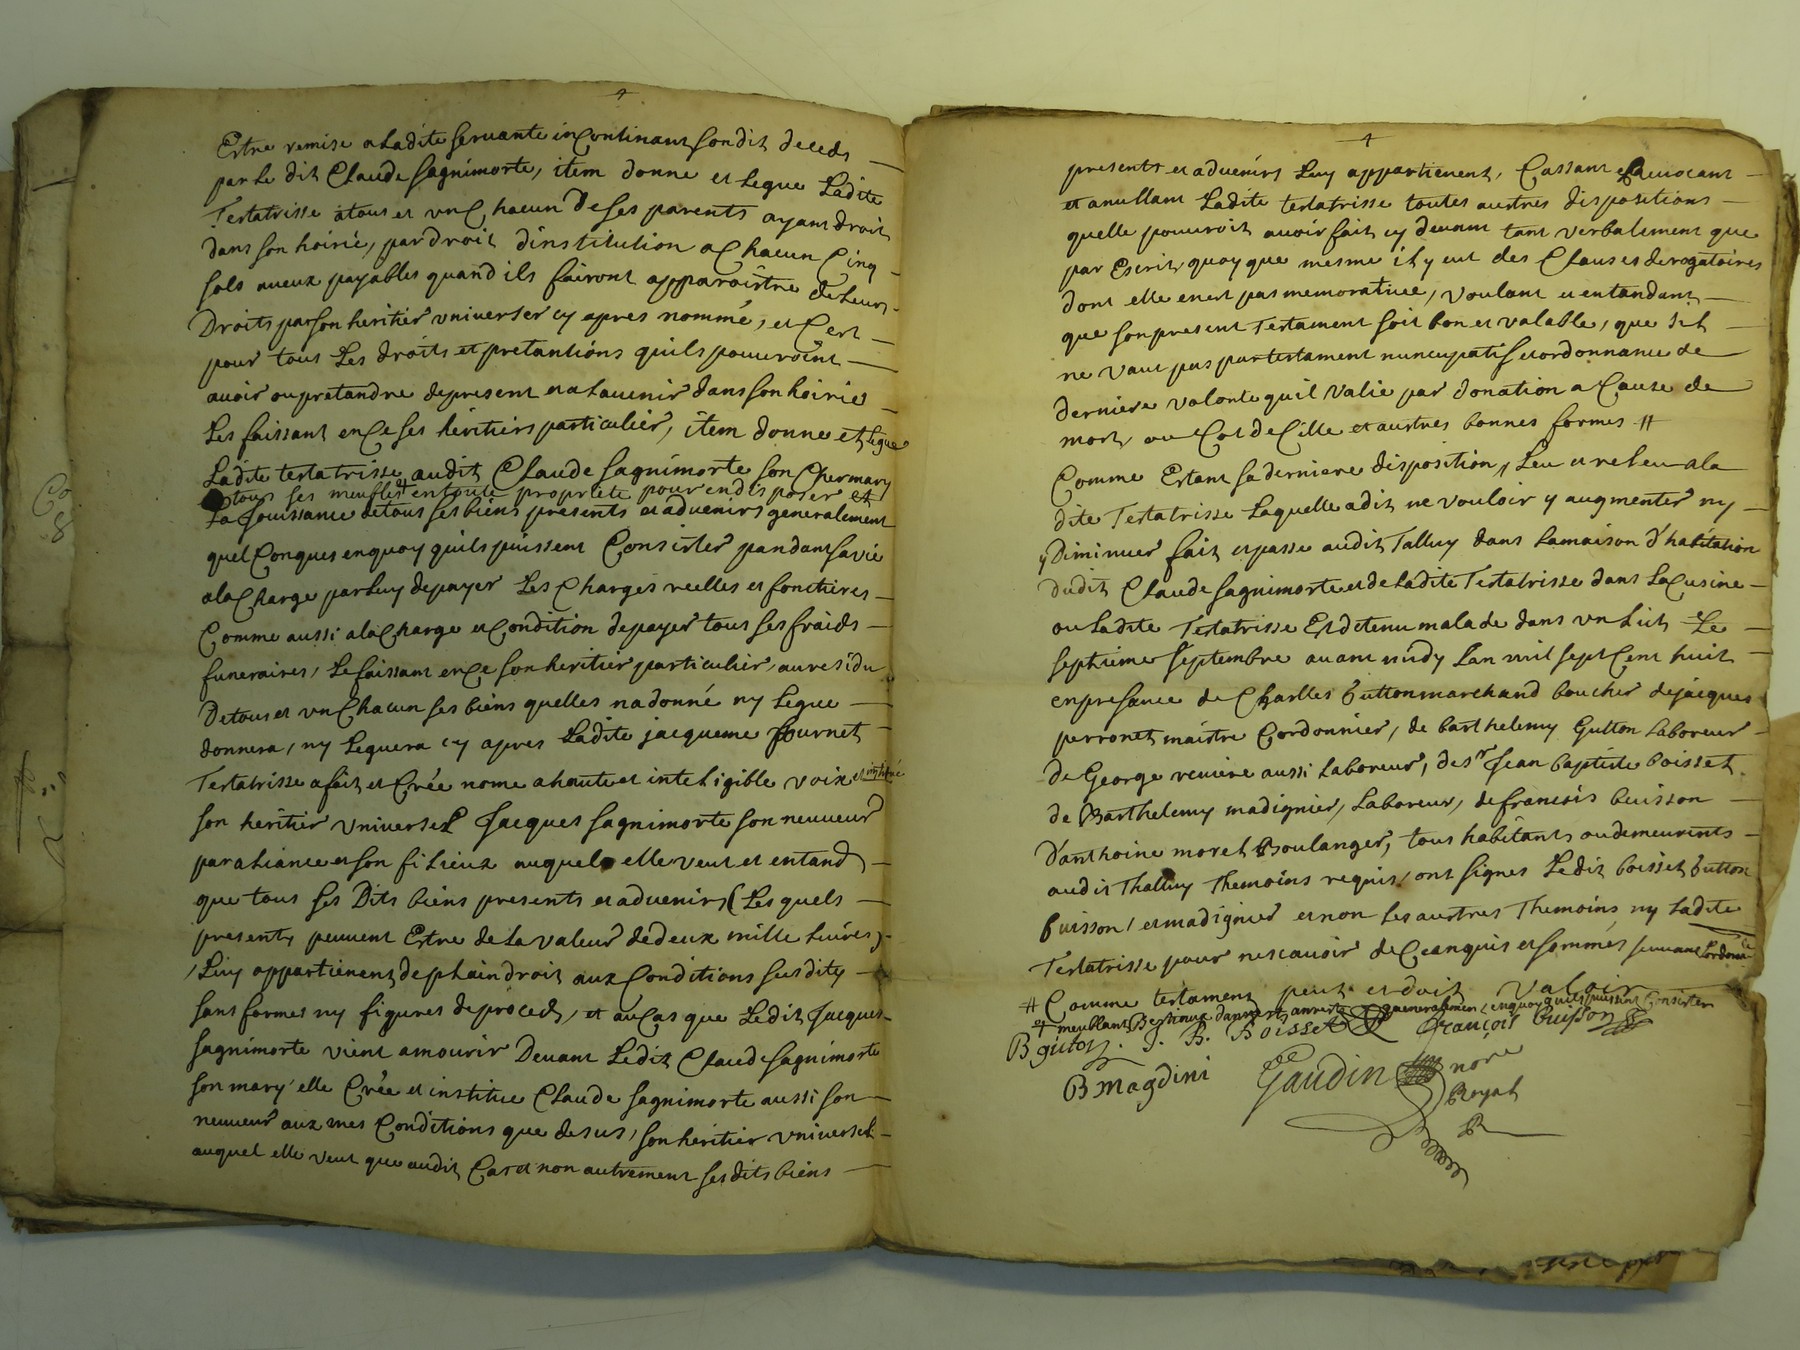 Estre remise a Ladite servante incontinant son dit deceds
par Le dit Claude Sagnimorte, item donne et Legue Ladite
Testatrisse a tous et un Chacun de ses parents ayant droit
dans son hoirie, par droit d'institution a Chacun Cinq
sols aueux payables quand ils fairont apparoistre de Leurs
Droits par son heritier universer cy apres nommé, et C'est
pour tous Les droits et pretantions quils pouuroint
auoir ou pretandre de present et a Lauenir dans son hoirie
Les faissant en Ce ses heritiers particulier, item donne et Legue
Ladite testatrisse audit Claude Sagnimorte son Cher mary
tous ses meubles et en toute propriete pour en disposer et
La Jouissance de tous ses biens presents et advenirs generalement
quelConques en quoy quils puissent Consister pandant sa vie
a la Charge par Luy de payer Les Charges reelles et foncieres
Comme aussi a la Charge et Condition de payer tous ses fraids
funeraires, Le faissant en Ce son heritier particulier, au residu
De tous et un Chacun ses biens quelles na donné ny Legue
donnera, ny Leguera cy apres Ladite jacqueme fournet
Testatrisse a fait et Crée nome a haute et inteligible voix et institué
son heritier Universel Jacques Sagnimorte son neuueur
par aliance et son filieux auquel elle veut et entand
que tous ses Dits biens presents et advenirs (Les quels
presents peuuent Estre de La valeur de deux mille Liures)
Luy appartienent de plain droit aux Conditions susdites
sans formes ny figures de proceds, et au Cas que Ledit Jacques
Sagnimorte vient a mourir Deuant Ledit Claude Sagnimorte
son mary elle Crée et institue Claude Sagnimorte aussi son
neuueur aux mes Conditions que desus, son heritier universel
auquel elle veut que audit Cas et non autrement sesdits biens
presents et advenirs Luy appartienent, Cassant et Reuocant
et anullant Ladite testatrisse toutes austres dispositions
quelle pouuroit auoir fait cy deuant tant verbalement que
par Escrit quoy que mesme il y eut des Clauses derogatoires
dont elle en est pas memoratiue, voulant et entandant
que son present Testament soit bon et valable, que sil
ne vaut pas par testament nuncupatif et ordonnance de
derniere volonte quil valie par donation a Cause de
mort, ou CodeCille et austres bonnes formes #
Comme Estant sa derniere disposition, Leu et releu a la
dite Testatrisse Laquelle a dit ne vouloir y augmenter ny
y Diminuer fait et passe audit Talluy dans La maison d'habitation
dudit Claude Sagnimorte et de Ladite Testatrisse dans La Cusine
ou Ladite Testatrisse Est detenu malade dans un Lict Le
septieme Septembre auant midy Lan mil sept Cent huit
en presance de Charlles Cutton marchand boucher de jacques
perronet maistre Cordonnier, de barthelemy Gutton Laboreur
de George reuiere aussi Laboreur, de sr Jean baptiste boisset
de Barthelemy madignier, Laboreur, de francois buisson
d'anthoine morel Boulanger, tous habitants ou demeurents
audit Thalluy Themoins requis, ont signes Ledit boisset Cutton
buisson, et madignier et non Les austres Themoins ny Ladite
Testatrisse pour ne scauoir de Ce anquis et sommés suiuant Lordonce
# Comme testament peut et doit valoir
et meublant generalement en quoy quils puissent Consister
B gutton J. B. Boisset François buisson
B Magdini Gaudin nore
Royal